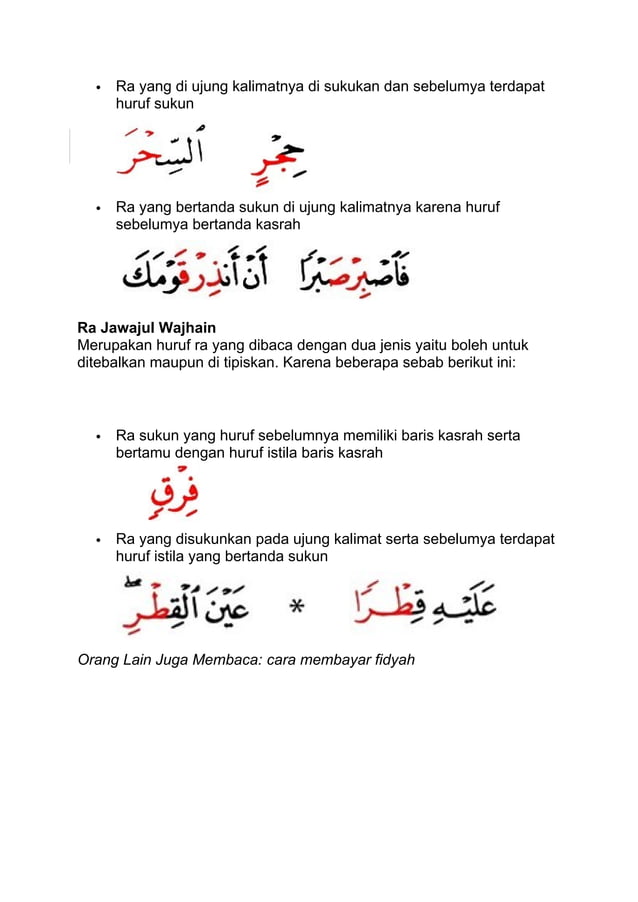 • Ra yang di ujung kalimatnya di sukukan dan sebelumya terdapat
huruf sukun
حِجْرٍ السِّحْرَ
• Ra yang bertanda sukun di ujung kalimatnya karena huruf
sebelumya bertanda kasrah
فَاصْبِرْ صَبْرًا أَنْ أَنْذِرْ قَوْمَكَ
Ra Jawajul Wajhain
Merupakan huruf ra yang dibaca dengan dua jenis yaitu boleh untuk
ditebalkan maupun di tipiskan. Karena beberapa sebab berikut ini:
• Ra sukun yang huruf sebelumnya memiliki baris kasrah serta
bertamu dengan huruf istila baris kasrah
فِرْقٍ
• Ra yang disukunkan pada ujung kalimat serta sebelumya terdapat
huruf istila yang bertanda sukun
عَلَيْهِ قِطْرًا * عَيْنَ الْقِطْرِ ۖ
Orang Lain Juga Membaca: cara membayar fidyah